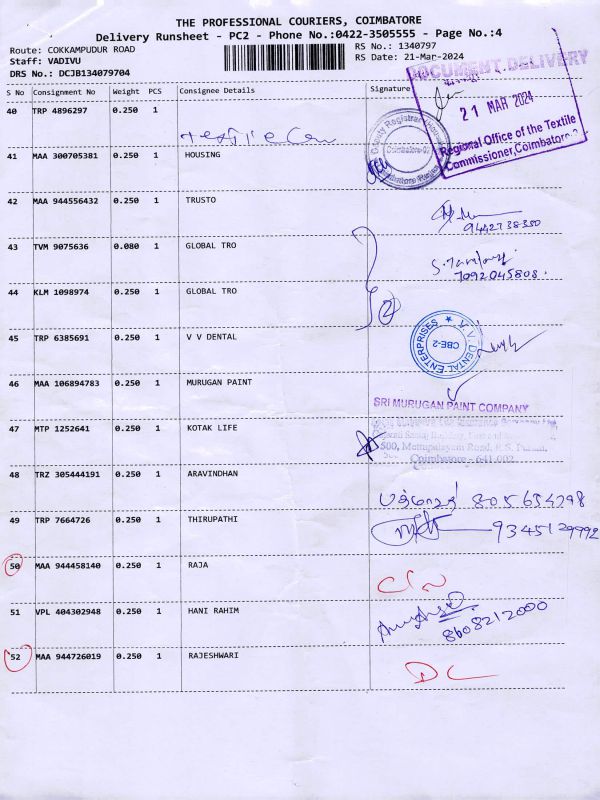 THE PROFESSIONAL COURIERS, COIMBATORE
Delivery Runsheet - PC2 - Phone No.:0422-3505555 - Page No.:4
Route: COKKAMPUDUR ROAD
RS No.: 1340797
Staff: VADIVU
RS Date: 21-Mar-2024
DRS No.: DCJB134079704
DOCUMENT DELIVERY
S No Consignment No Weight PCS Consignee Details Signature
21 MAR 2024
Regional Office of the Textile
Commissioner, Coimbatore-2
40 TRP 4896297 0.250 1
41 MAA 300705381 0.250 1 HOUSING
42 MAA 944556432 0.250 1 TRUSTO
9442738350
43 TVM 9075636 0.080 1 GLOBAL TRO
7092045808
44 KLM 1098974 0.250 1 GLOBAL TRO
45 TRP 6385691 0.250 1 V V DENTAL
V.V. DENTAL ENTERPRISES ★
CBE-2
46 MAA 106894783 0.250 1 MURUGAN PAINT
SRI MURUGAN PAINT COMPANY
47 MTP 1252641 0.250 1 KOTAK LIFE
500, Mettupalayam Road, R.S. Puram,
Coimbatore - 641 002
48 TRZ 305444191 0.250 1 ARAVINDHAN
49 TRP 7664726 0.250 1 THIRUPATHI
9345129992
50 MAA 944458140 0.250 1 RAJA
51 VPL 404302948 0.250 1 HANI RAHIM
8608212000
52 MAA 944726019 0.250 1 RAJESHWARI
DC